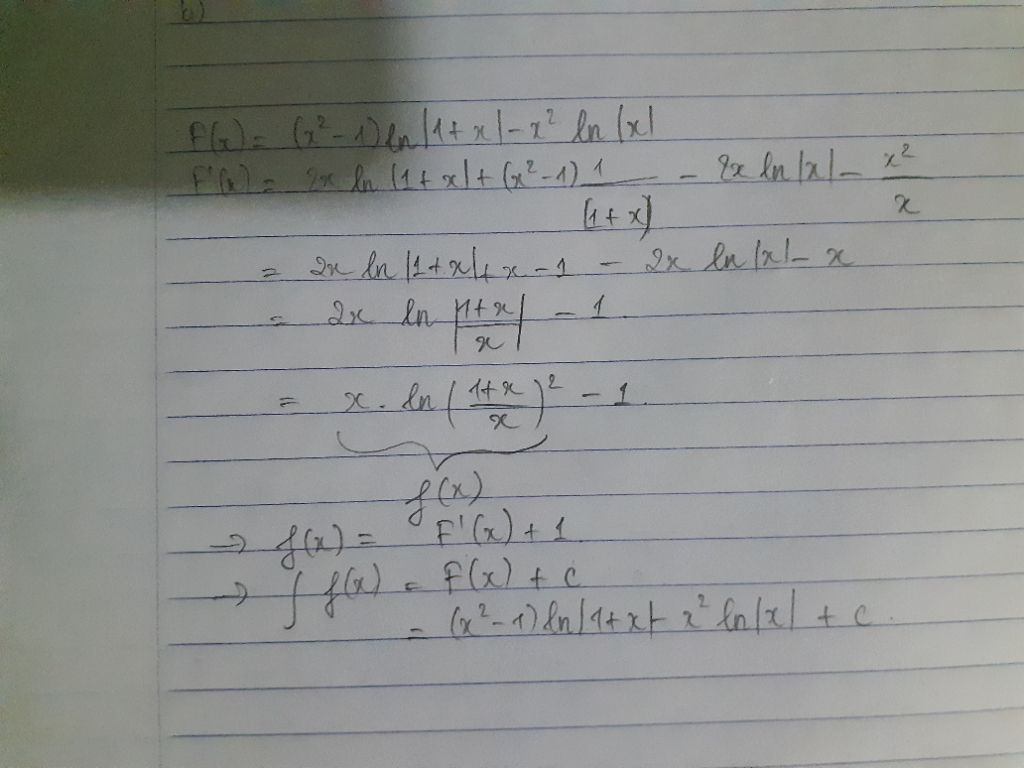 b)
F(x) = (x² - 1) ln|1 + x| - x² ln |x|
F'(x) = 2x ln |1 + x| + (x² - 1) 1/(1 + x) - 2x ln |x| - x²/x
= 2x ln |1 + x| + x - 1 - 2x ln |x| - x
= 2x ln |(1 + x)/x| - 1.
= x . ln ((1 + x)/x)² - 1.
f(x)
→ f(x) = F'(x) + 1.
→ ∫ f(x) = F(x) + c
= (x² - 1) ln|1 + x| - x² ln|x| + c.